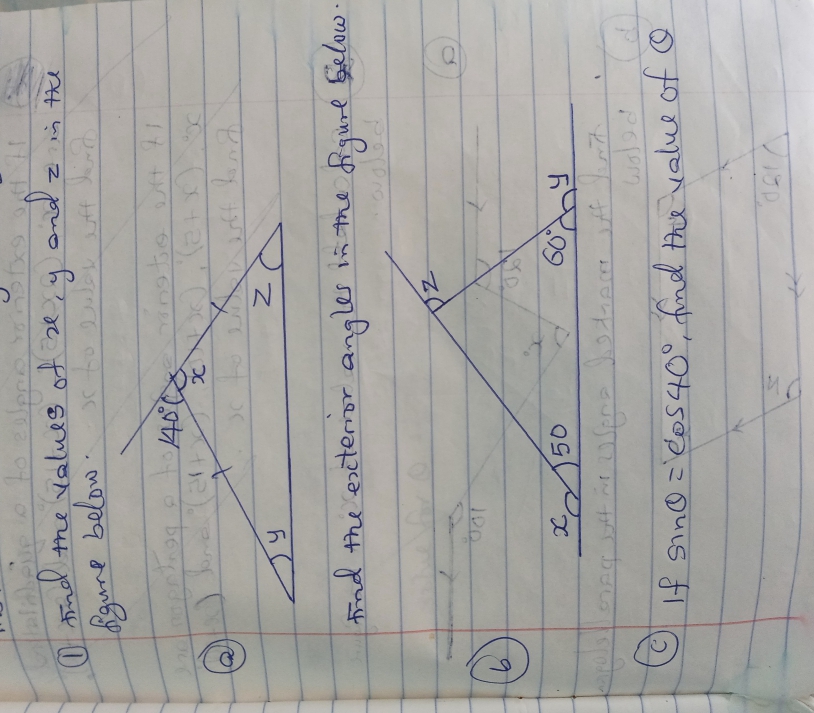 ① Find the values of x, y and z in the
figure below.
ⓐ
140°
x
y
z
Find the exterior angles in the figure below.
ⓑ
z
x
50
60°
y
ⓒ If sinθ = cos40°, find the value of θ